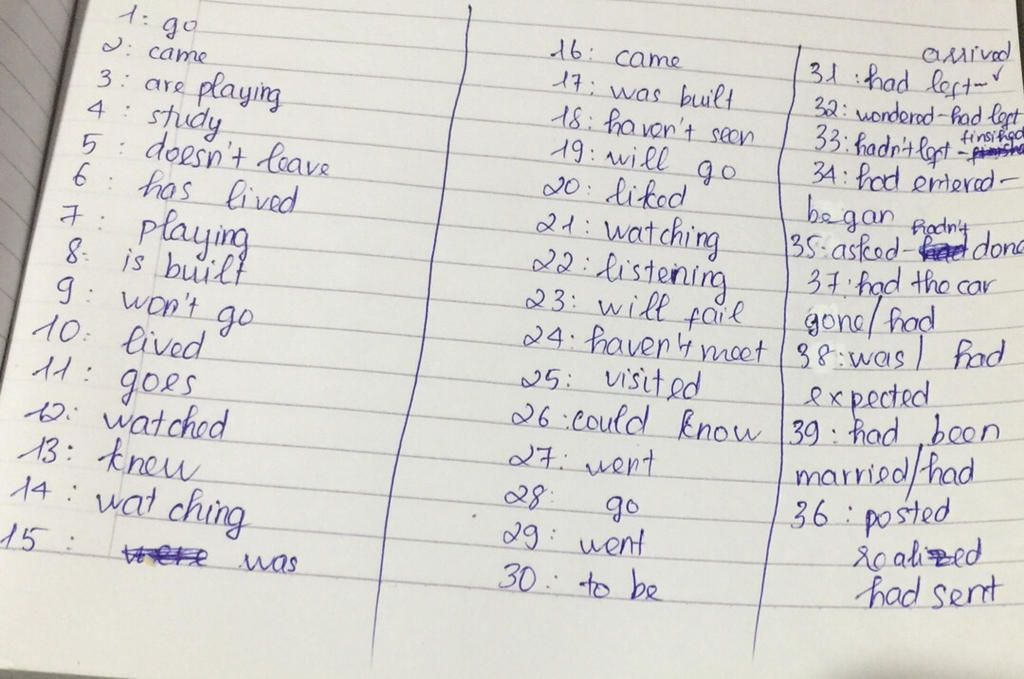 1: go
2: came
3: are playing
4: study
5: doesn't leave
6: has lived
7: playing
8: is built
9: won't go
10: lived
11: goes
12: watched
13: knew
14: watching
15: was
16: came
17: was built
18: haven't seen
19: will go
20: liked
21: watching
22: listening
23: will fail
24: haven't meet
25: visited
26: could know
27: went
28: go
29: went
30: to be
arrived
31: had left-
32: wondered-had left
finsihed
33: hadn't left-
34: had entered-
began
hadn't
35: asked- done
37: had the car
gone/had
38: was/had
expected
39: had been
married/had
36: posted
realized
had sent